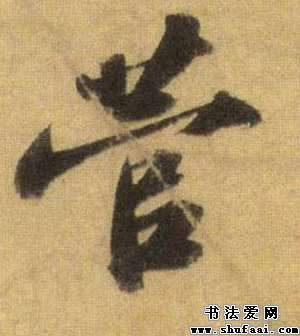 营
书法爱网
www.shufaai.com